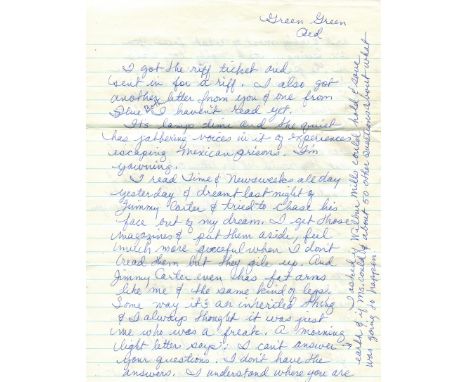 Green Green
Red
I got the riff ticket and
sent in for a riff. I also got
another letter from you & one from
I haven't read yet.
Its lamp time and the quiet
has gathering voices in it of experiences
escaping Mexican prisons. I'm
yawning.
I read Time & Newsweek all day
yesterday & dreamt last night of
Jimmy Carter & tried to chase his
face out of my dream. I get those
magazines & put them aside, feel
much more graceful when I don't
read them but they pile up. And
Jimmy Carter even has fat arms
like me & the same kind of legs.
Some way it's an inherited thing
& I always thought it was just
me who was a freak. A morning
light letter says: I can't answer
your questions. I don't have the
answers. I understand where you are
I asked if Wilbur Mills could hold & save
earth & if Ms. could & about 50 other questions about what
was going to happen